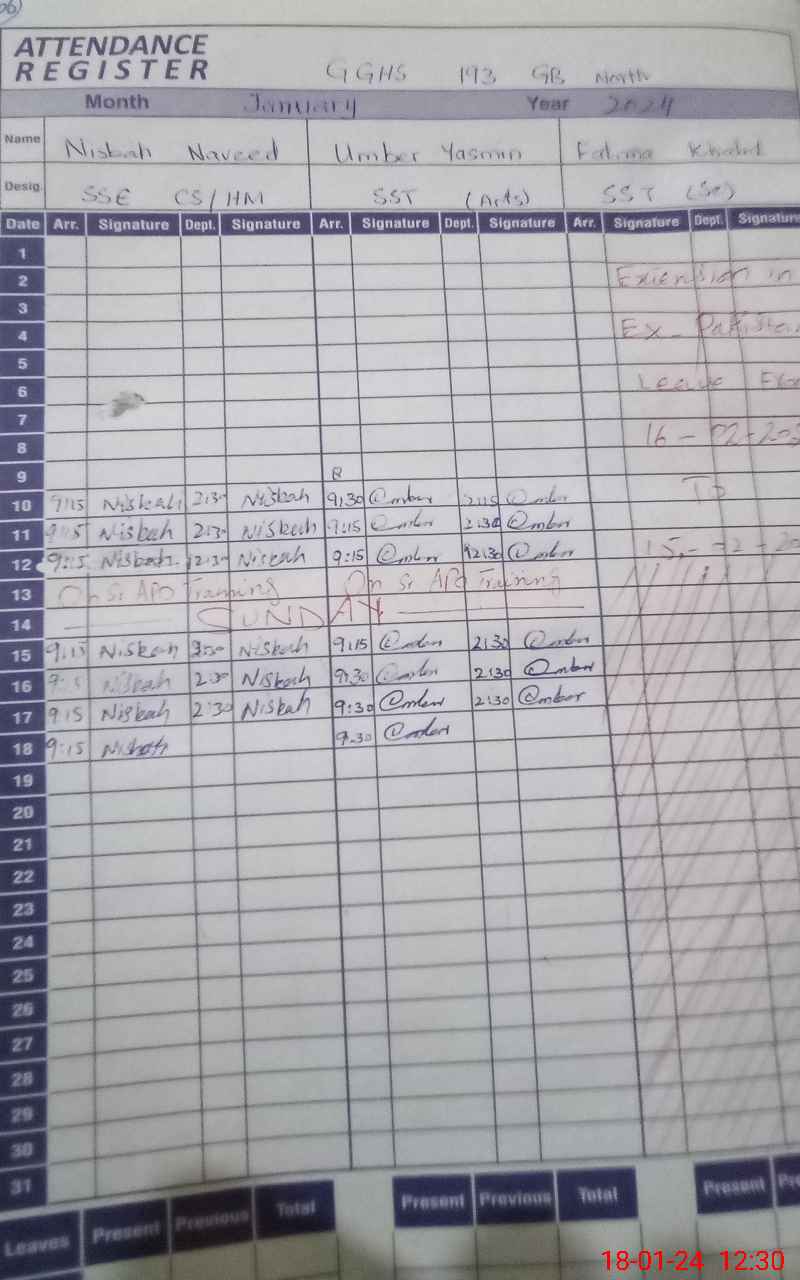 ATTENDANCE
REGISTER
GGHS 193 GB North
Month January Year 2024
Name Nisbah Naveed Umber Yasmin Fatima
Desig. SSE CS/HM SST (Arts) SST (Sc)
Date Arr. Signature Dept. Signature Arr. Signature Dept. Signature Arr. Signature Dept. Signature
1
2 Extension in
3
4 Ex - Pakistan
5
6 Leave
7
8 16 - 02 -
9
10 9:15 Nisbah 2:30 Nisbah 9:30 @mber 2:15 @mber To
11 9:15 Nisbah 2:30 Nisbah 9:15 @mber 2:30 @mber
12 9:15 Nisbah 12:30 Nisbah 9:15 @mber 12:30 @mber 15 - -02 - 20
13 On Sr APO Training On Sr APO Training
14 SUNDAY
15 9:15 Nisbah Nisbah 9:15 @mber 2:30 @mber
16 Nisbah Nisbah 9:30 @mber 2:30 @mber
17 9:15 Nisbah 2:30 Nisbah 9:30 @mber 2:30 @mber
18 9:15 Nisbah 9:30 @mber
19
20
21
22
23
24
25
26
27
28
29
30
31
Leaves Present Previous Total Present Previous Total Present
18-01-24 12:30